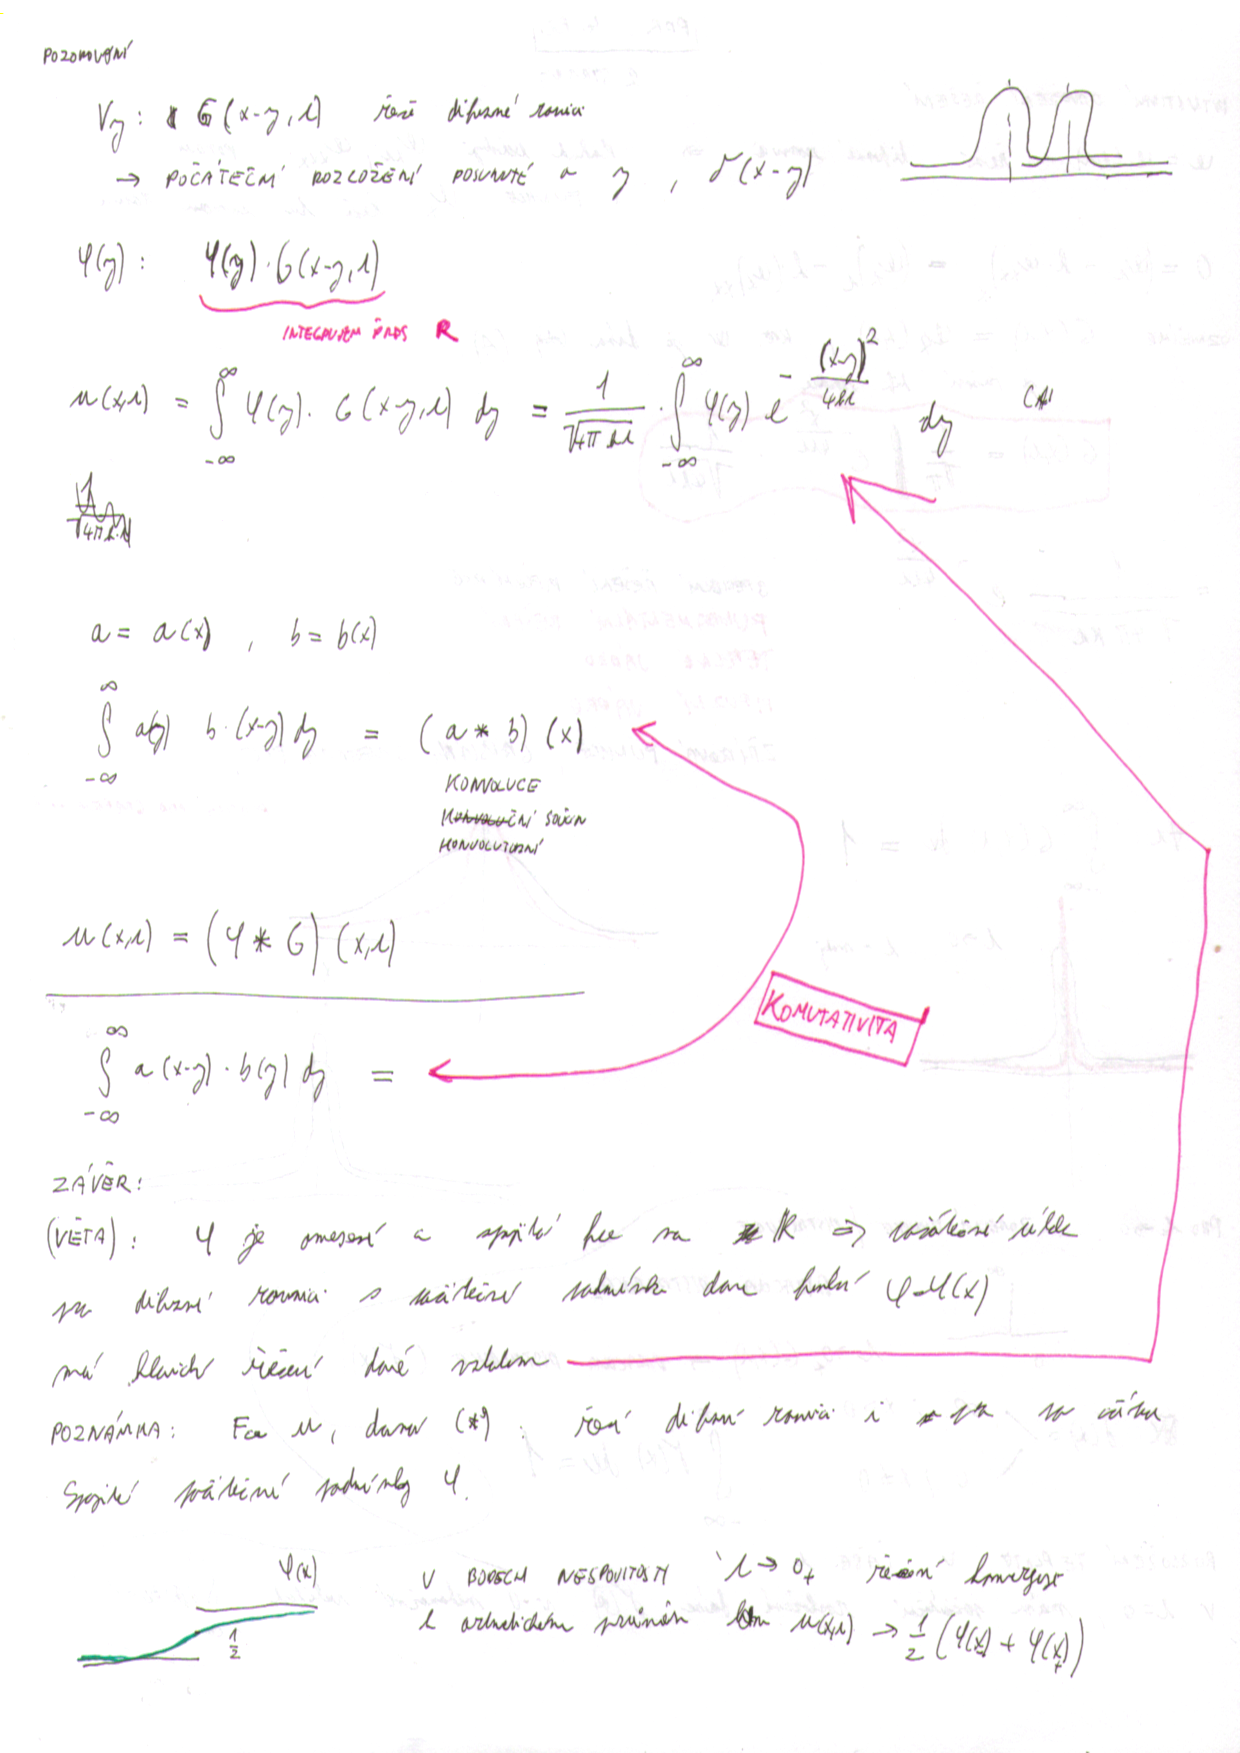 POZOROVÁNÍ
∀y: G(x-y,t) řeší difuzné rovnici
→ POČÁTEČNÍ ROZLOŽENÍ POSUNUTÉ o y, δ(x-y)
φ(y): φ(y)·G(x-y,t)
INTEGRUJEM PŘES R
u(x,t) = ∫_{-∞}^{∞} φ(y)·G(x-y,t) dy = 1/√(4πkt) · ∫_{-∞}^{∞} φ(y) e^{-(x-y)²/4kt} dy
a = a(x), b = b(x)
∫_{-∞}^{∞} a(y) b·(x-y) dy = (a * b)(x)
KONVOLUCE
SOUČIN
KONVOLUTORNÍ
u(x,t) = (φ * G)(x,t)
KOMUTATIVITA
∫_{-∞}^{∞} a(x-y)·b(y) dy =
ZÁVĚR:
(VĚTA): φ je omezená a spojitá fce na R ⇒ počáteční úloha
pro difuzní rovnici s počáteční podmínkou danou funkcí φ=φ(x)
má klasické řešení dané vztahem
POZNÁMKA: Fce u, daná (*): řeší difuzní rovnici i pro po částech
spojité počáteční podmínky φ.
φ(x)
1/2
V BODECH NESPOJITOSTI t → 0+ řešení konverguje
k aritmetickému průměru u(x,t) → 1/2 (φ(x-) + φ(x+))